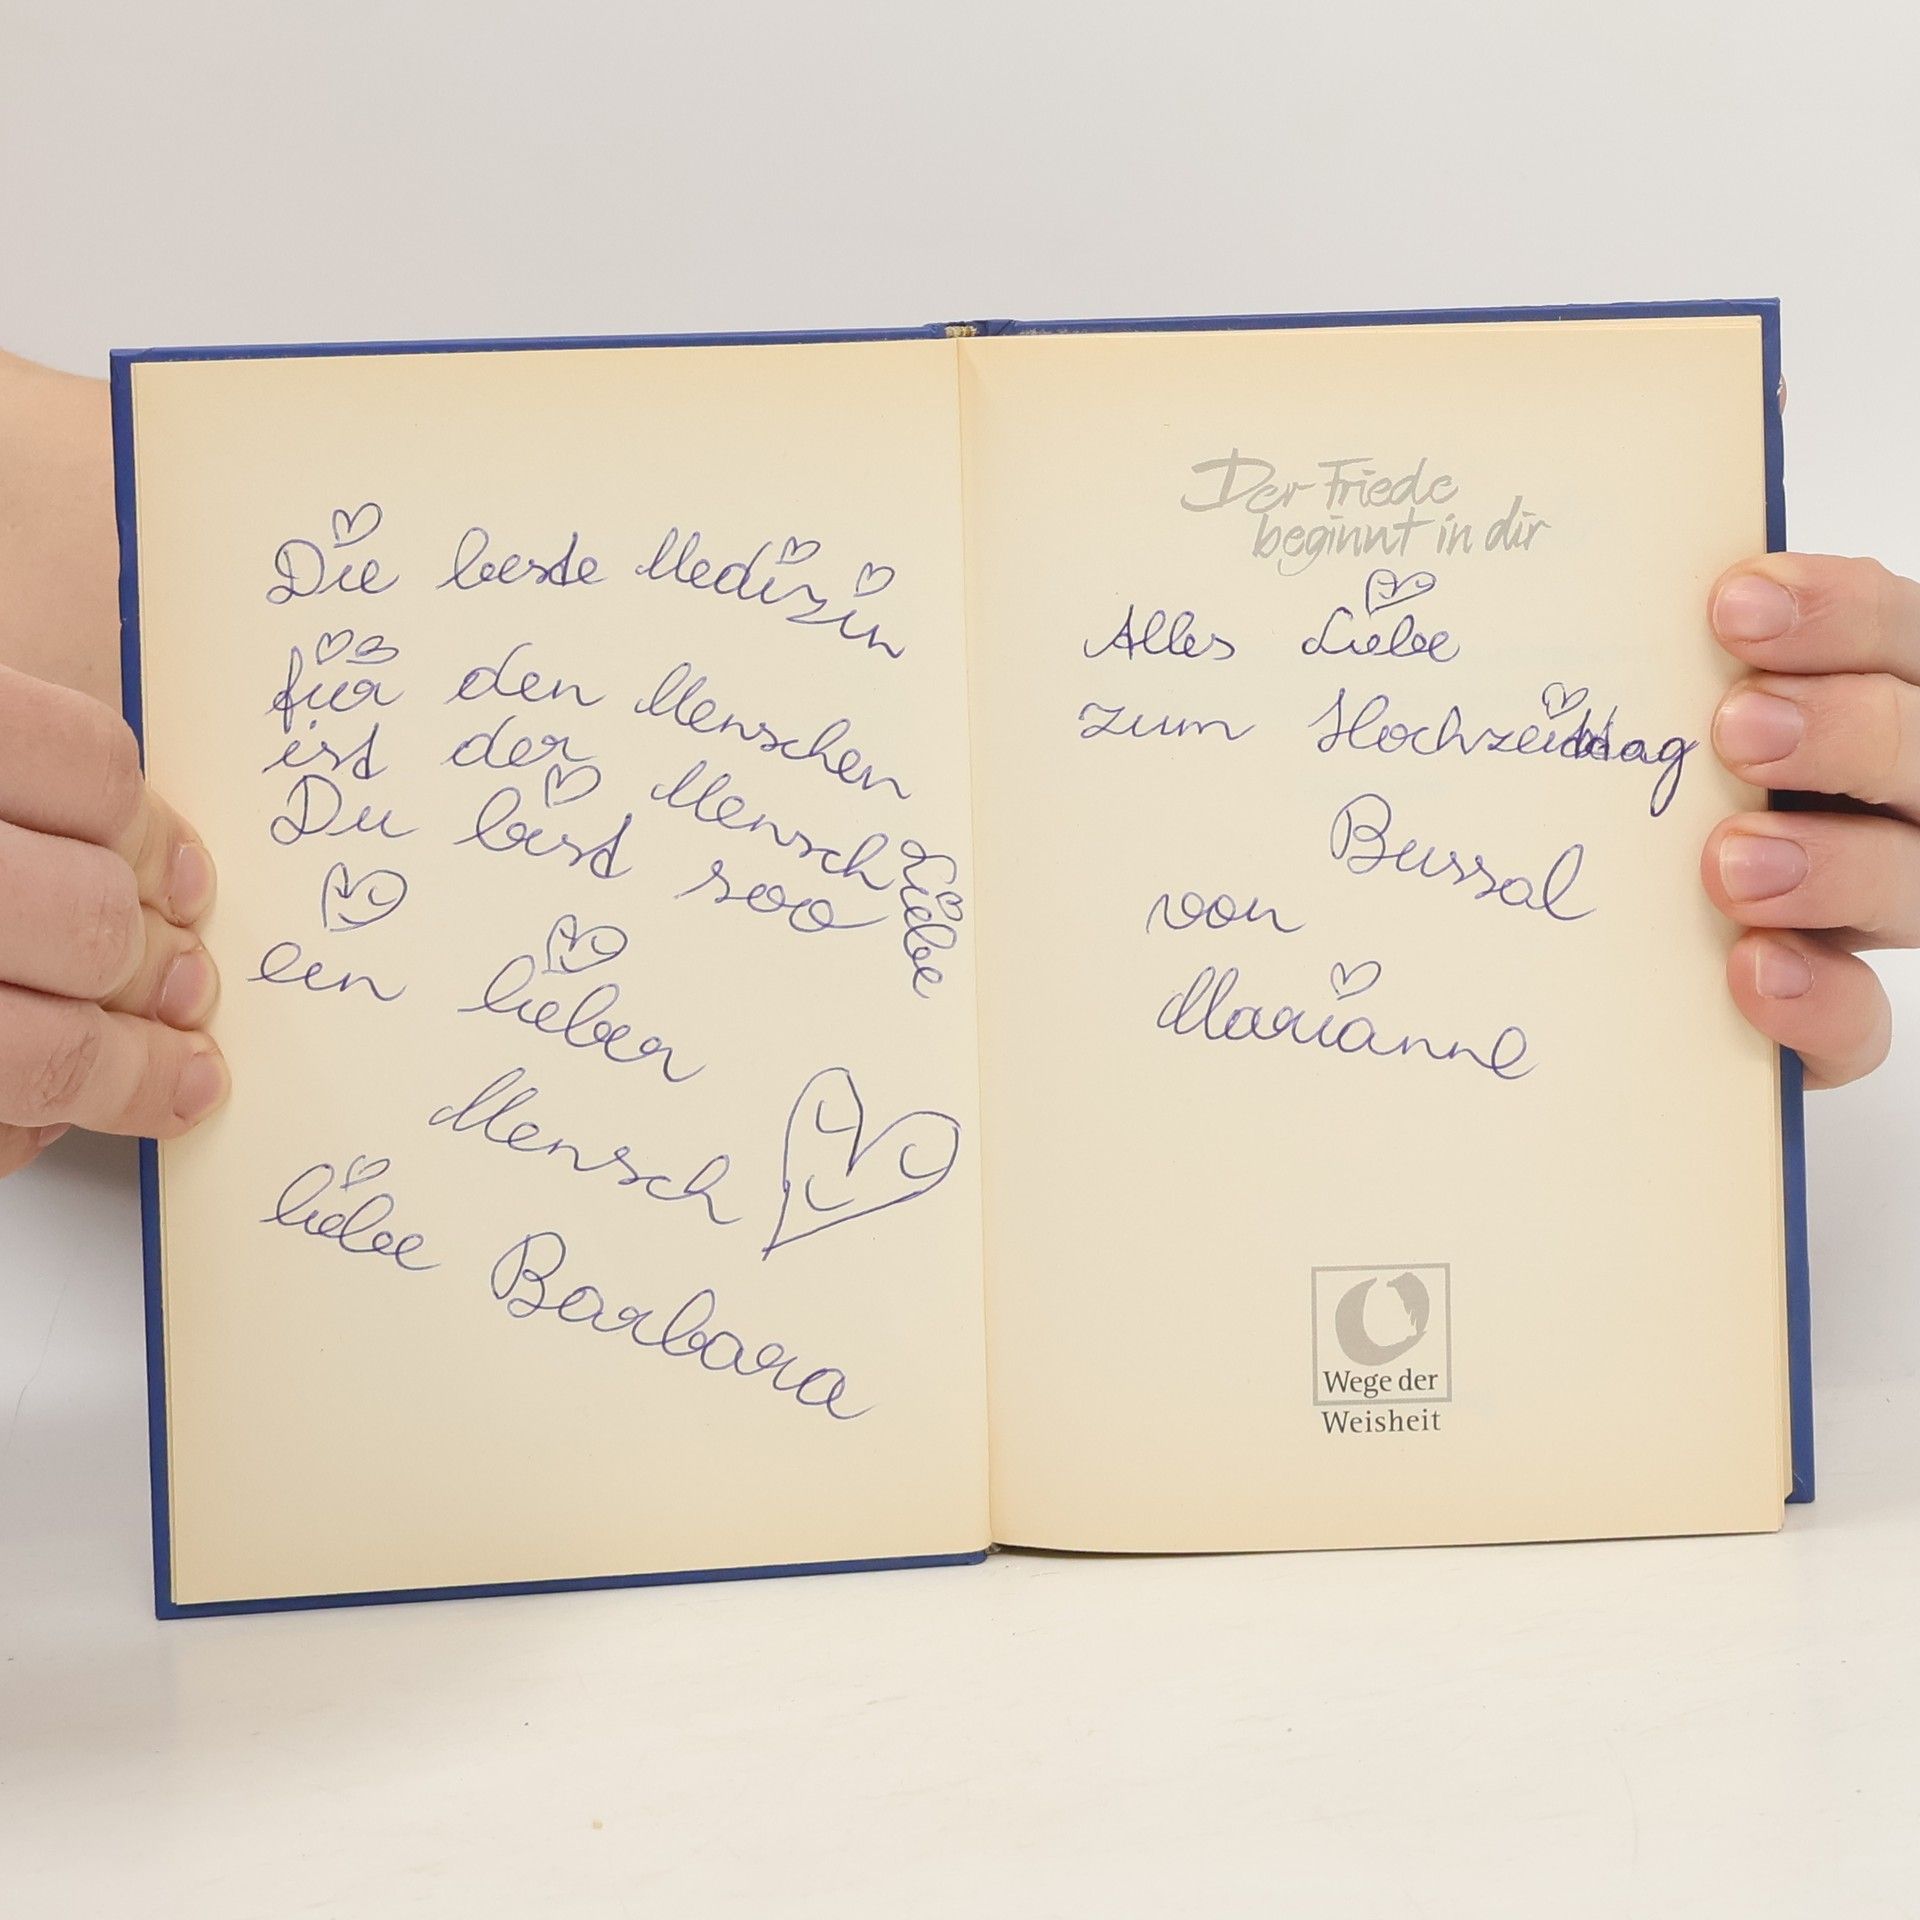 Die beste Medizin
für den Menschen
ist der Mensch
Liebe
Du bist soo
ein lieber
Mensch
liebe Barbara
Der Friede
beginnt in dir
Alles Liebe
zum Hochzeittag
Bussal
von
Marianne
Wege der
Weisheit